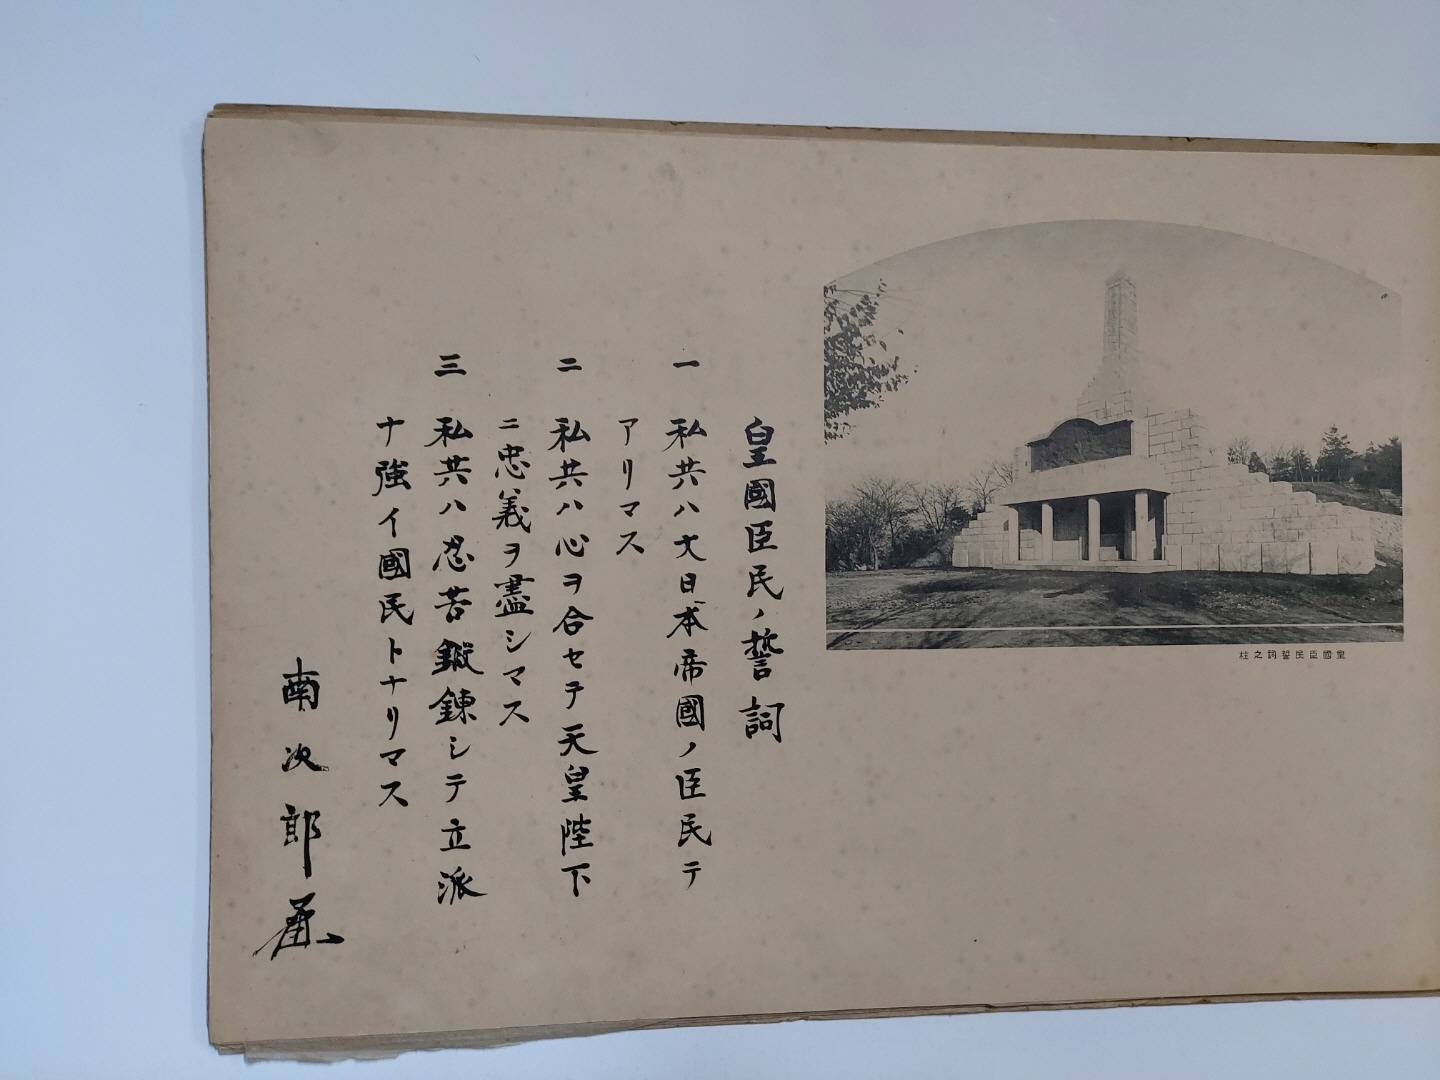 皇國臣民ノ誓詞
一 私共ハ大日本帝國ノ臣民テ
アリマス
二 私共ハ心ヲ合セテ天皇陛下
ニ忠義ヲ盡シマス
三 私共ハ忍苦鍛錬シテ立派
ナ強イ國民トナリマス
南次郎
皇國臣民誓詞之柱